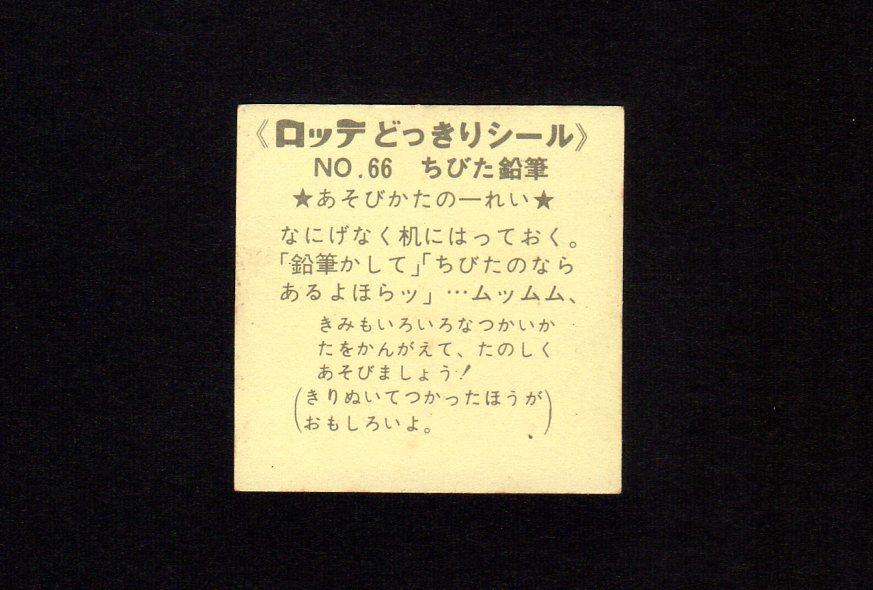 《ロッテどっきりシール》
NO.66 ちびた鉛筆
★あそびかたの一れい★
なにげなく机にはっておく。
「鉛筆かして」「ちびたのなら
あるよほらッ」…ムッムム、
きみもいろいろなつかいか
たをかんがえて、たのしく
あそびましょう!
(きりぬいてつかったほうが
おもしろいよ。)